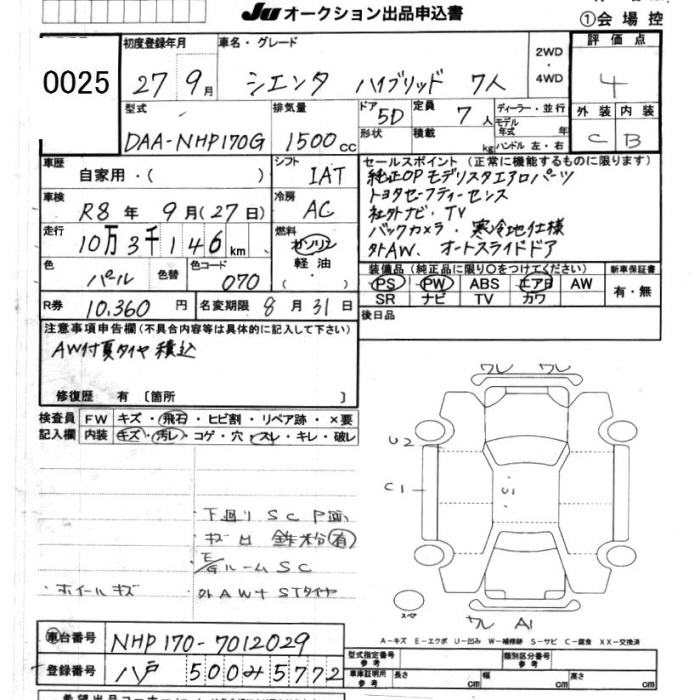 JU オークション出品申込書
①会場控
0025
初度登録年月
27年9月
車名・グレード
シエンタ ハイブリッド 7人
2WD・4WD
評価点
4
型式
DAA-NHP170G
排気量
1500cc
ドア 5D
形状
定員 7人
積載 kg
ディーラー・並行
モデル年式 年
ハンドル 左・右
外装 内装
C B
車歴
自家用・( )
シフト
IAT
車検
R8年9月(27日)
冷房
AC
走行
10万3千146km
燃料
ガソリン
軽油
( )
色
パール
色替
色コード
070
R券
10,360円
名変期限 8月31日
セールスポイント(正常に機能するものに限ります)
純正OPモデリスタエアロパーツ
トヨタセーフティーセンス
社外ナビ・TV
バックカメラ・寒冷地仕様
外AW. オートスライドドア
装備品(純正品に限り○をつけてください)
PS PW ABS エアB AW
SR ナビ TV カワ
新車保証書
有・無
後日品
注意事項申告欄(不具合内容等は具体的に記入して下さい)
AW付夏タイヤ積込
修復歴 有〔箇所 〕
検査員記入欄
FW キズ・飛石・ヒビ割・リペア跡・×要
内装 キズ・汚レ・コゲ・穴・スレ・キレ・破レ
・下廻りSC
・キズ凹 鉄粉(有)
・E/GルームSC
・ホイールキズ
・外AW+STタイヤ
ワレ ワレ
U2
C1
U1
スペア
ワレ A1
A-キズ E-エクボ U-凹み W-補修跡 S-サビ C-腐食 XX-交換済
車台番号 NHP170-7012029
登録番号 八戸 500 み 5772
型式指定番号 参考
類別区分番号 参考
車庫証明用 参考
長さ cm 幅 cm 高さ cm
希望出品コーナー